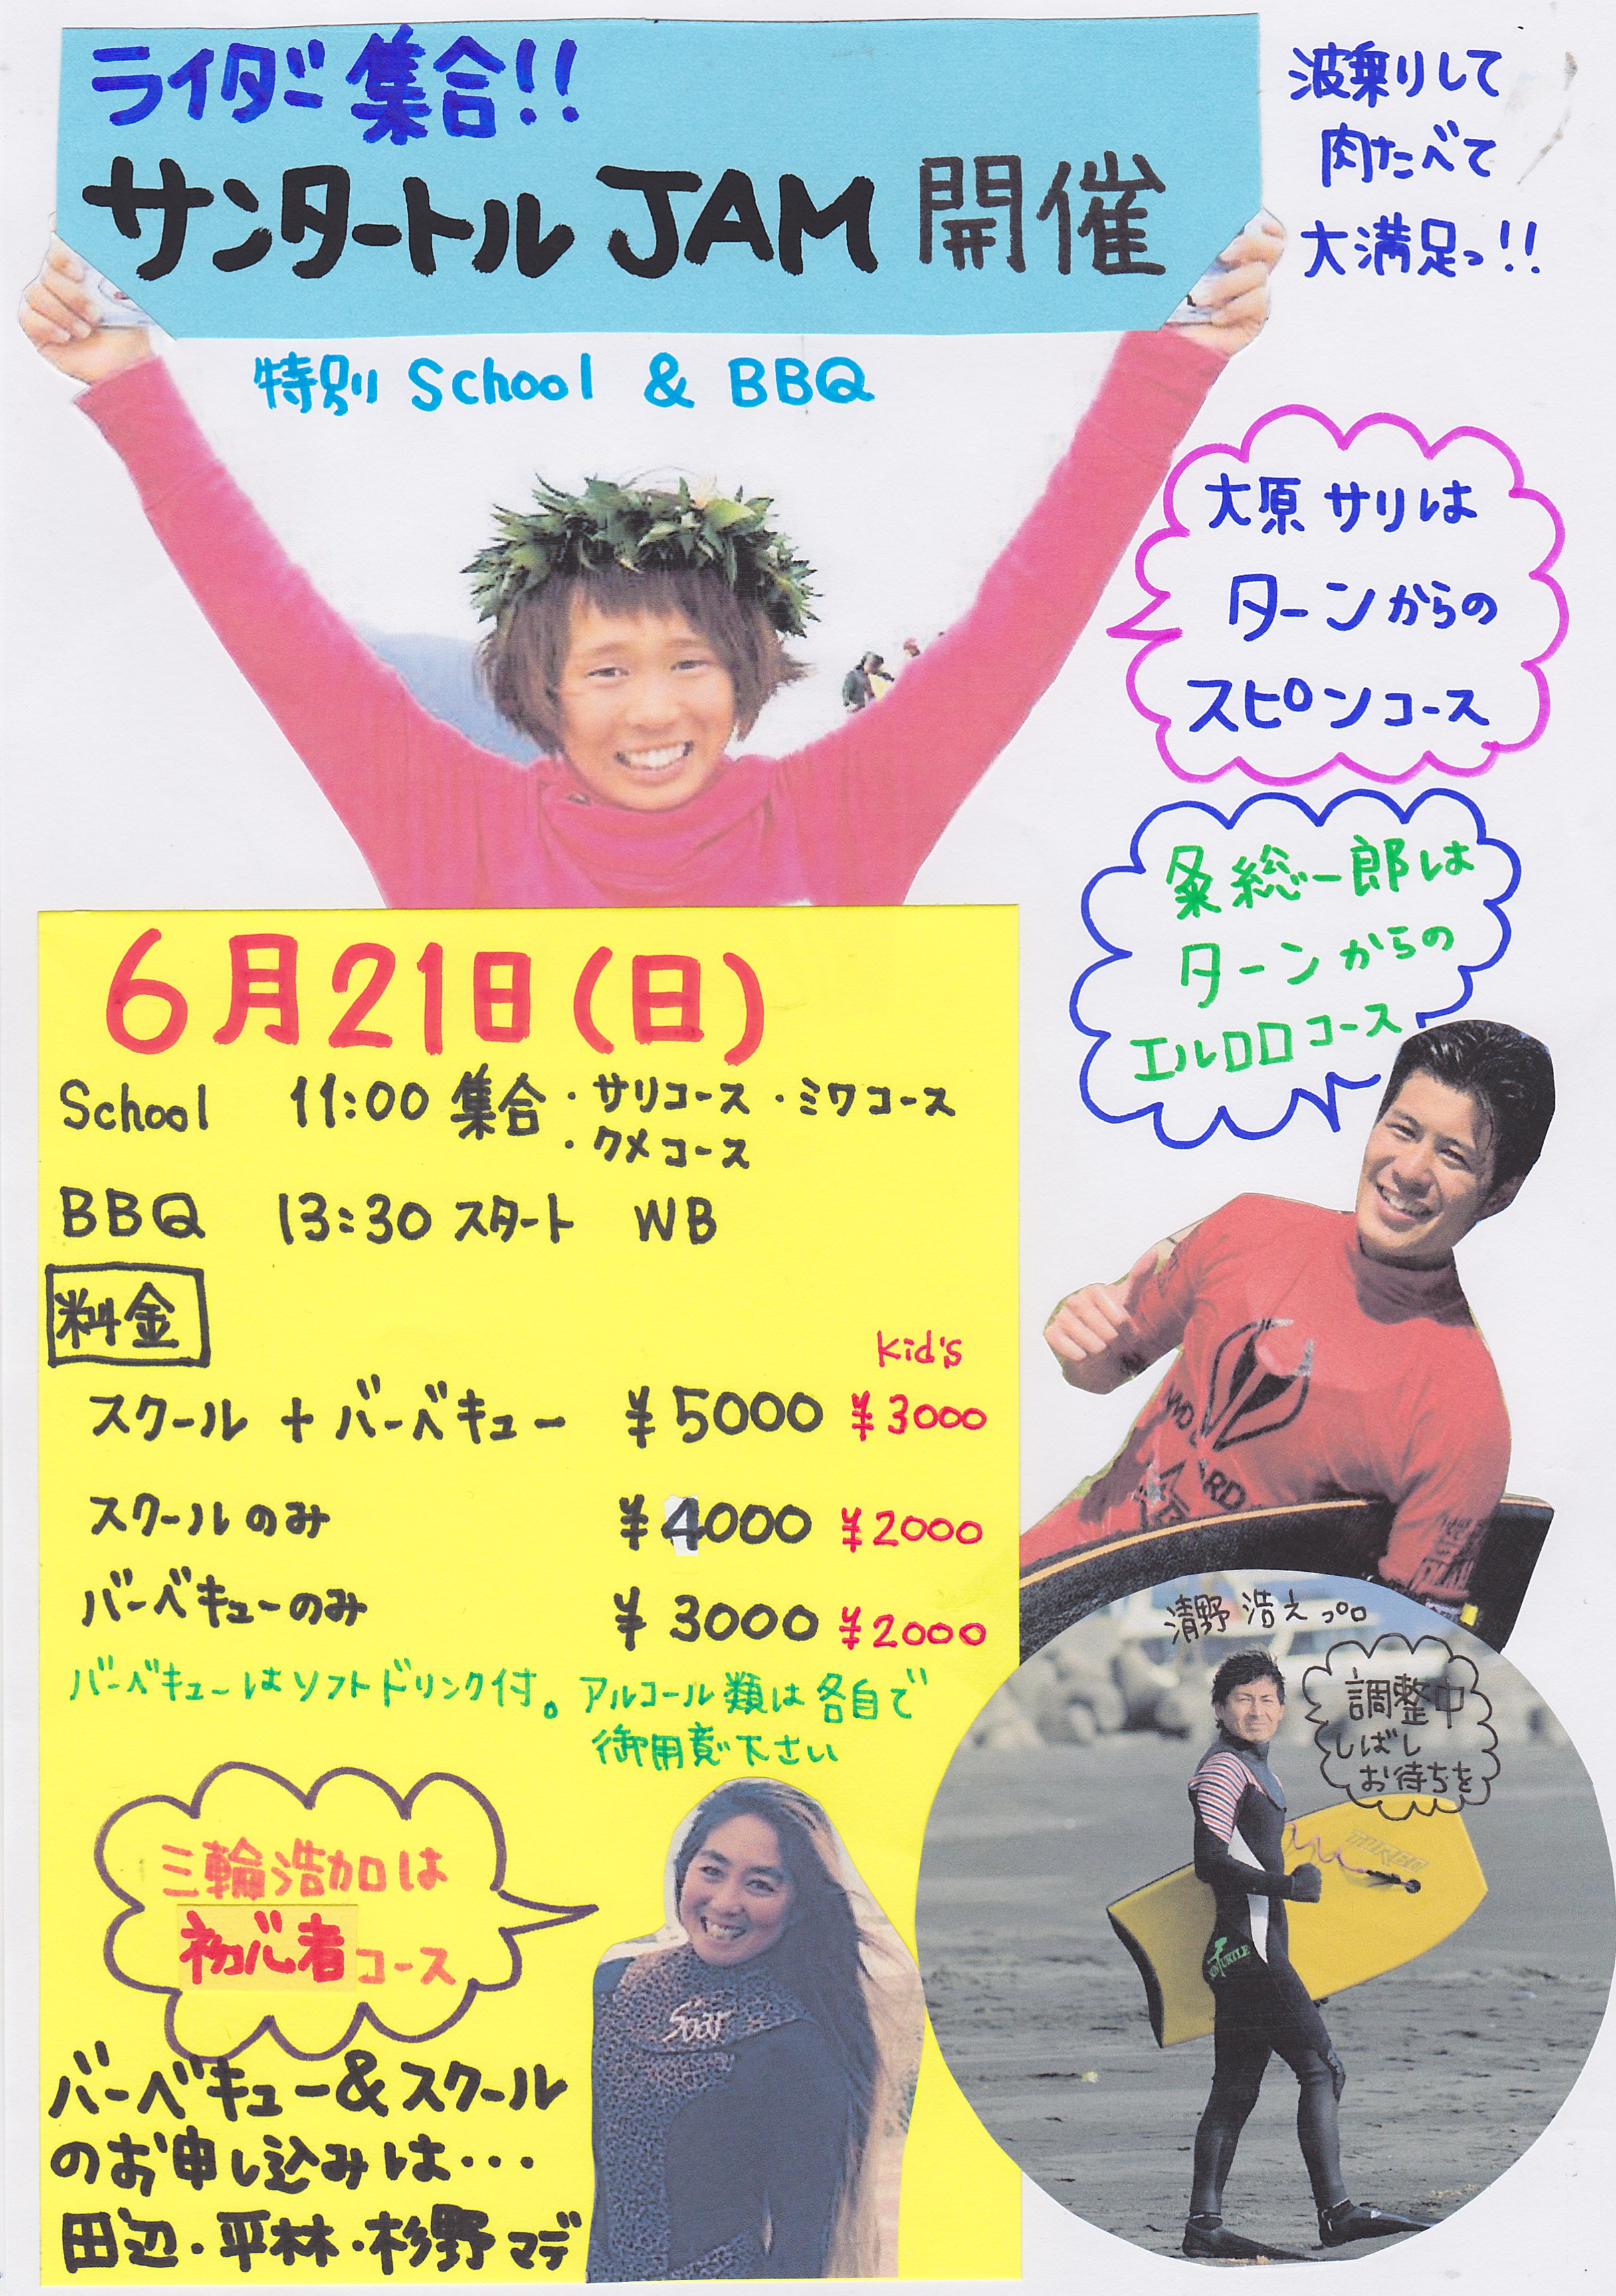 ライダー集合!!
サンタートル JAM 開催
波乗りして
肉たべて
大満足っ!!
特別 School & BBQ
大原サリは
ターンからの
スピンコース
粂総一郎は
ターンからの
エルロロコース
6月21日(日)
School 11:00 集合 ・サリコース ・ミワコース
・クメコース
BBQ 13:30 スタート WB
料金
Kid's
スクール + バーベキュー ¥5000 ¥3000
スクールのみ ¥4000 ¥2000
バーベキューのみ ¥3000 ¥2000
バーベキューはソフトドリンク付。アルコール類は各自で
御用意下さい
清野浩えプロ
調整中
しばし
お待ちを
三輪浩加は
初心者コース
バーベキュー&スクール
のお申し込みは・・・
田辺・平林・杉野マデ
TURTLE